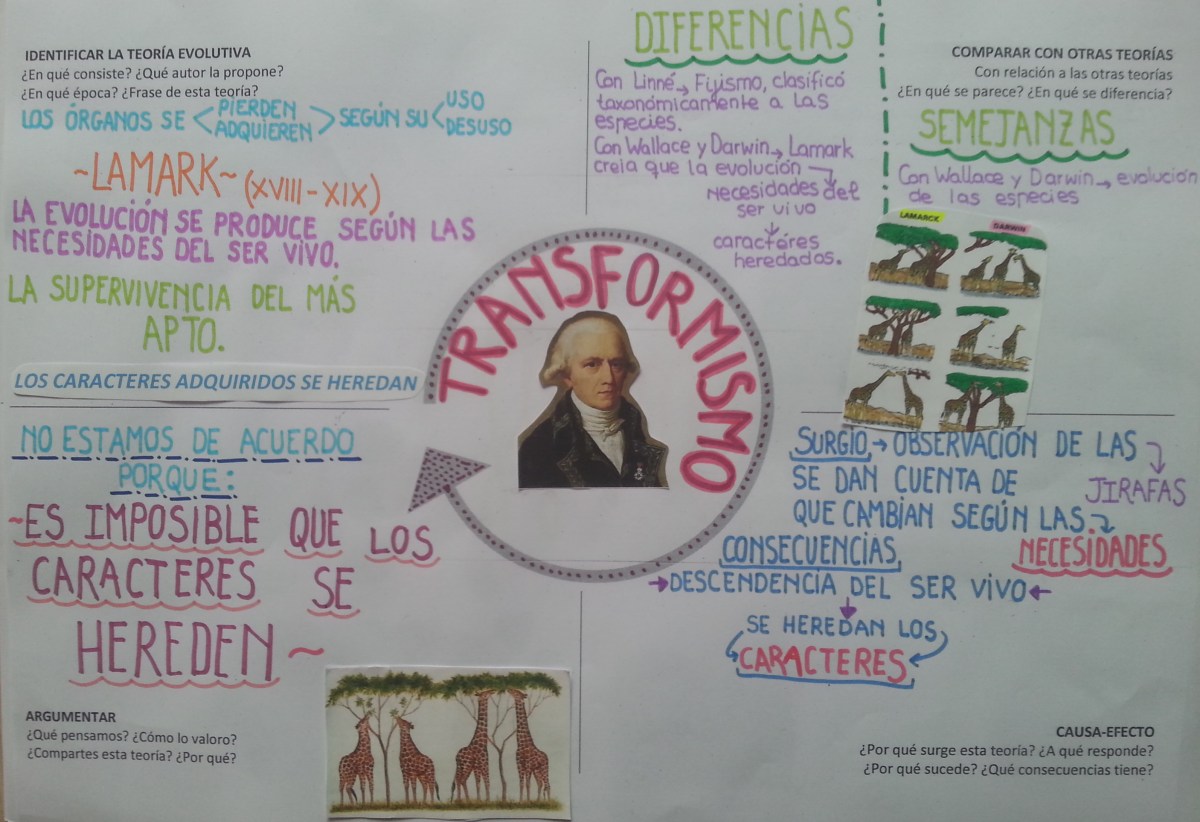 IDENTIFICAR LA TEORÍA EVOLUTIVA
¿En qué consiste? ¿Qué autor la propone?
¿En qué época? ¿Frase de esta teoría?
LOS ÓRGANOS SE < PIERDEN ADQUIEREN > SEGÚN SU < USO DESUSO
~LAMARK~ (XVIII-XIX)
LA EVOLUCIÓN SE PRODUCE SEGÚN LAS
NECESIDADES DEL SER VIVO.
LA SUPERVIVENCIA DEL MÁS
APTO.
LOS CARACTERES ADQUIRIDOS SE HEREDAN
DIFERENCIAS
Con Linné→ Fijismo, clasificó
taxonómicamente a las
especies.
Con Wallace y Darwin→ Lamark
creía que la evolución →
necesidades del
ser vivo
↓
caractéres
heredados.
COMPARAR CON OTRAS TEORÍAS
Con relación a las otras teorías
¿En qué se parece? ¿En qué se diferencia?
SEMEJANZAS
Con Wallace y Darwin→ evolución
de las especies
LAMARCK
DARWIN
TRANSFORMISMO
NO ESTAMOS DE ACUERDO
PORQUE:
~ES IMPOSIBLE QUE LOS
CARACTERES SE
HEREDEN~
ARGUMENTAR
¿Qué pensamos? ¿Cómo lo valoro?
¿Compartes esta teoría? ¿Por qué?
SURGIO→ OBSERVACIÓN DE LAS
JIRAFAS
SE DAN CUENTA DE
QUE CAMBIAN SEGÚN LAS
NECESIDADES
CONSECUENCIAS
→DESCENDENCIA DEL SER VIVO←
↓
SE HEREDAN LOS
CARACTERES
CAUSA-EFECTO
¿Por qué surge esta teoría? ¿A qué responde?
¿Por qué sucede? ¿Qué consecuencias tiene?